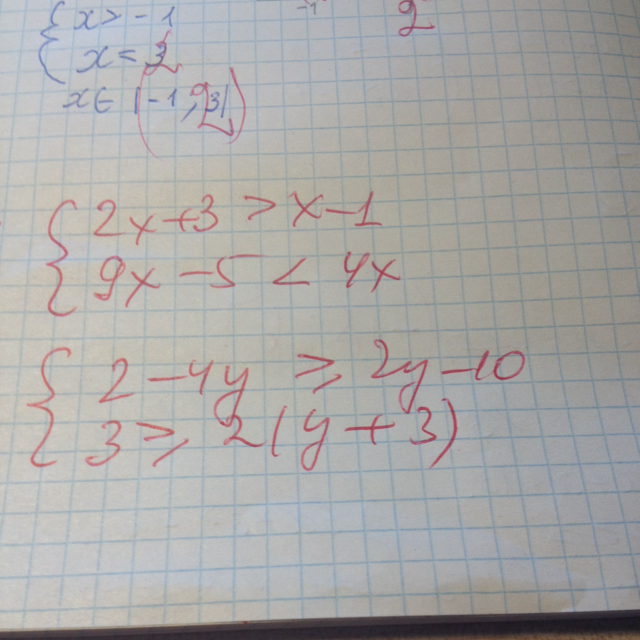 { x > -1
2
x = 2
x ∈ (-1; 
{ 2x+3 > x-1
9x - 5 < 4x
{ 2 - 4y ≥ 2y - 10
3 ≥ 2(y + 3)